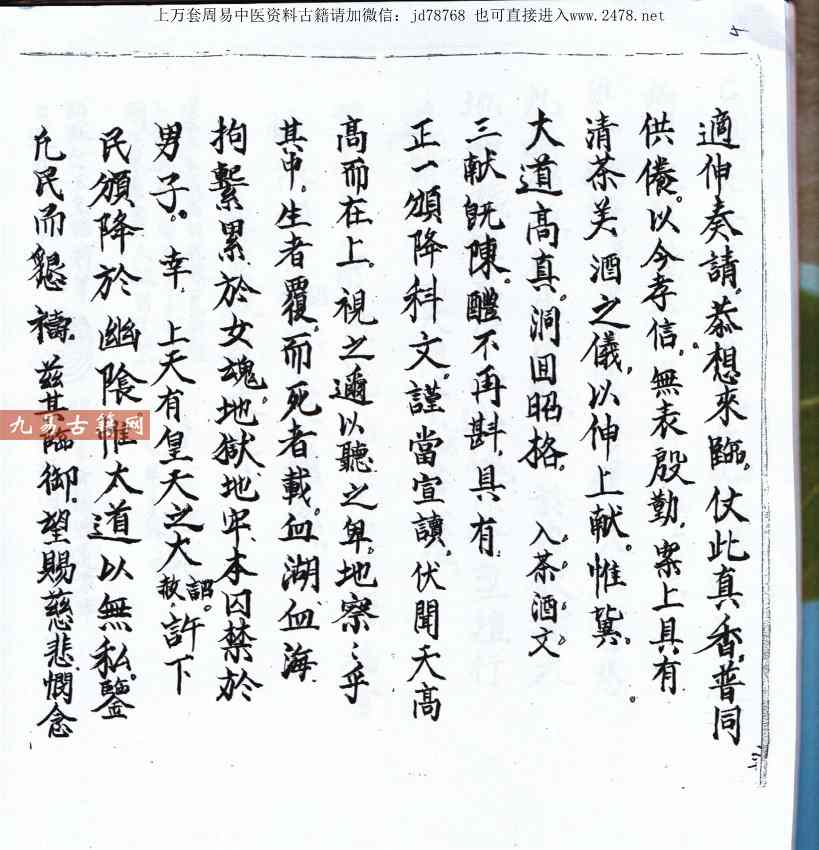 上万套周易中医资料古籍请加微信：jd78768 也可直接进入www.2478.net
適伸奏請。恭想來臨。仗此真香。普同
供養。以今孝信。無表殷勤，案上具有
清茶美酒之儀，以伸上献。惟冀。
大道高真。洞回昭格。入茶酒文。
三献既陳。醴不再斟。具有
正一頒降科文。謹當宣讀。伏聞天高
高而在上。視之邇以聽之卑。地察之乎
其中。生者覆。而死者載。血湖血海
拘繫累於女魂。地獄地牢。本囚禁於
男子。幸 上天有皇天之大赦詔。許下
民頒降於幽隂惟太道以無私。鑒
凢民而懇禱。兹其臨御。望賜慈悲憫念
九易古籍网